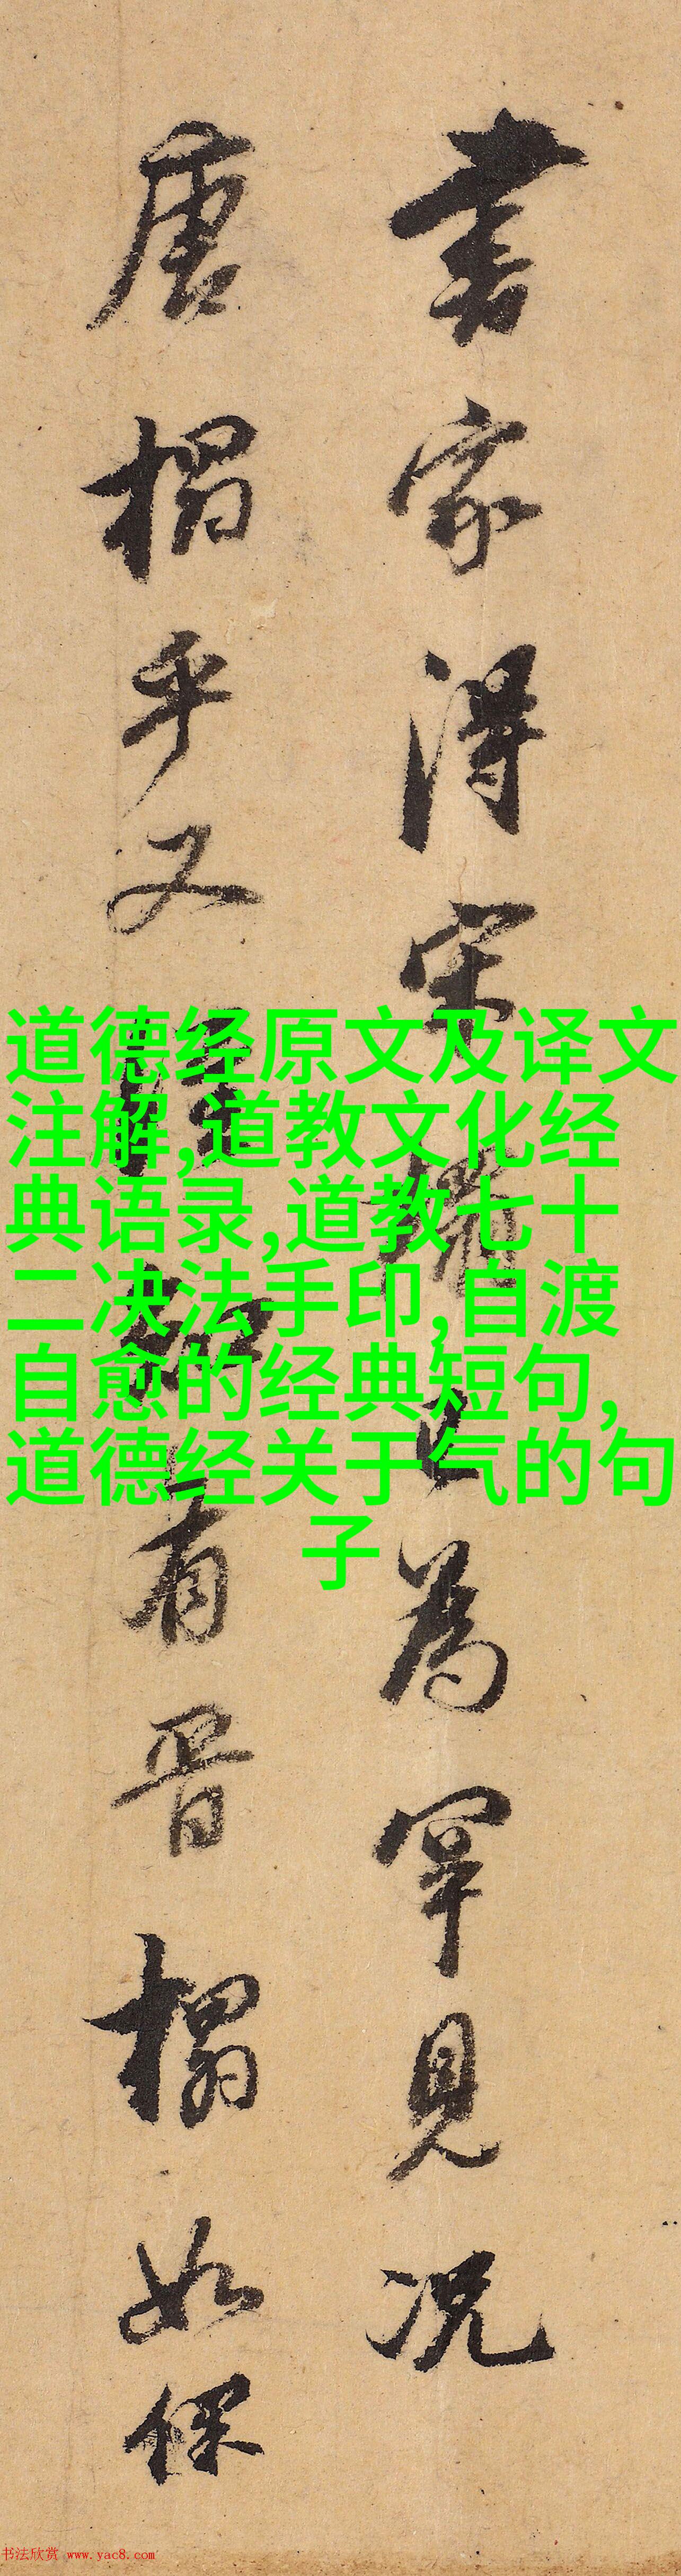 書家得宋搨已為罕見況
唐搨乎又
有晋搨如保
道德经原文及译文
注解,道教文化经
典语录,道教七十
二决法手印,自渡
自愈的经典短句,
道德经关于气的句
子
书法欣赏 www.yac8.com